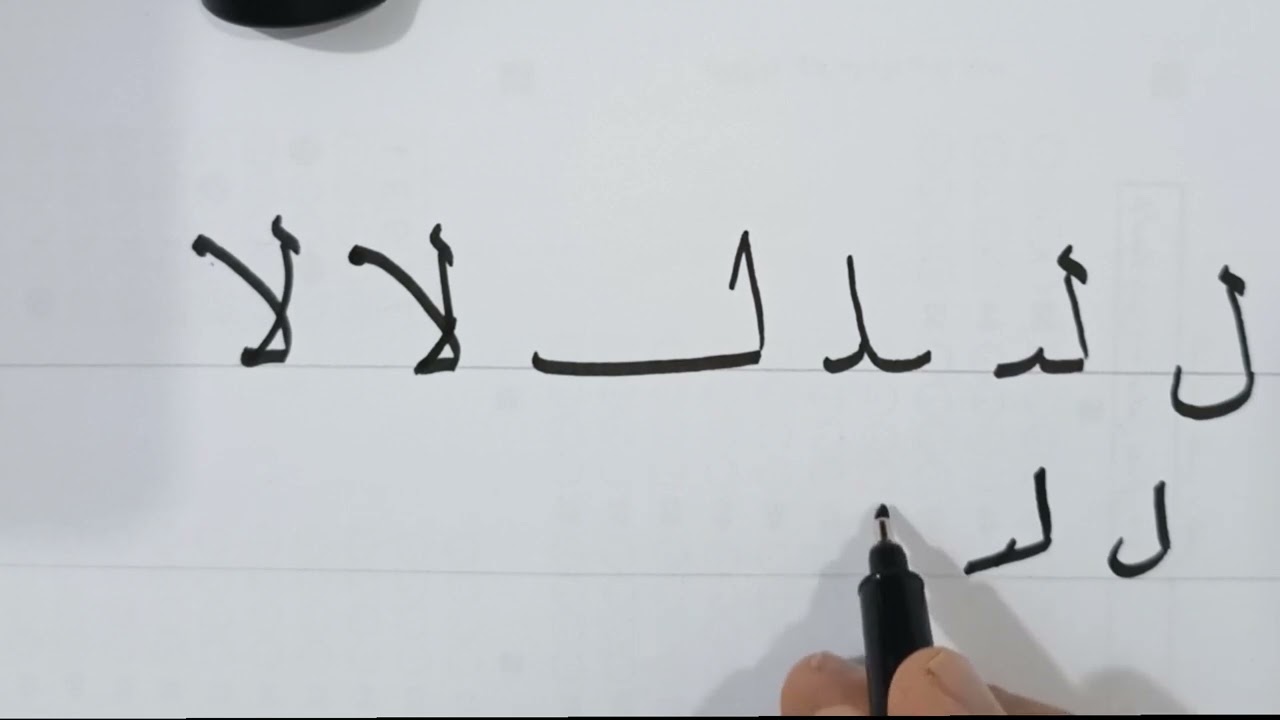 ل لـ ـلـ لـــ لا لا
ل لـ